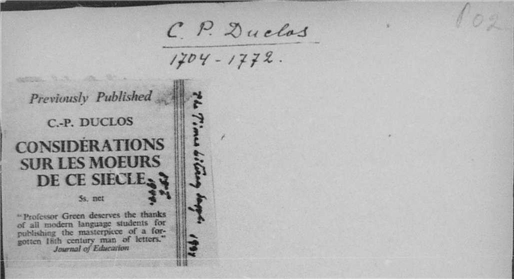 802
C. P. Duclos
1704-1772.
Previously Published
C.-P. DUCLOS
CONSIDÉRATIONS
SUR LES MOEURS
DE CE SIÈCLE
5s. net
"Professor Green deserves the thanks
of all modern language students for
publishing the masterpiece of a for-
gotten 18th century man of letters."
Journal of Education
The Times Literary